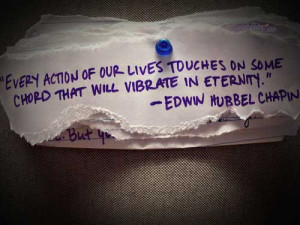 "EVERY ACTION OF OUR LIVES TOUCHES ON SOME
CHORD THAT WILL VIBRATE IN ETERNITY."
-EDWIN HUBBEL CHAPIN
But